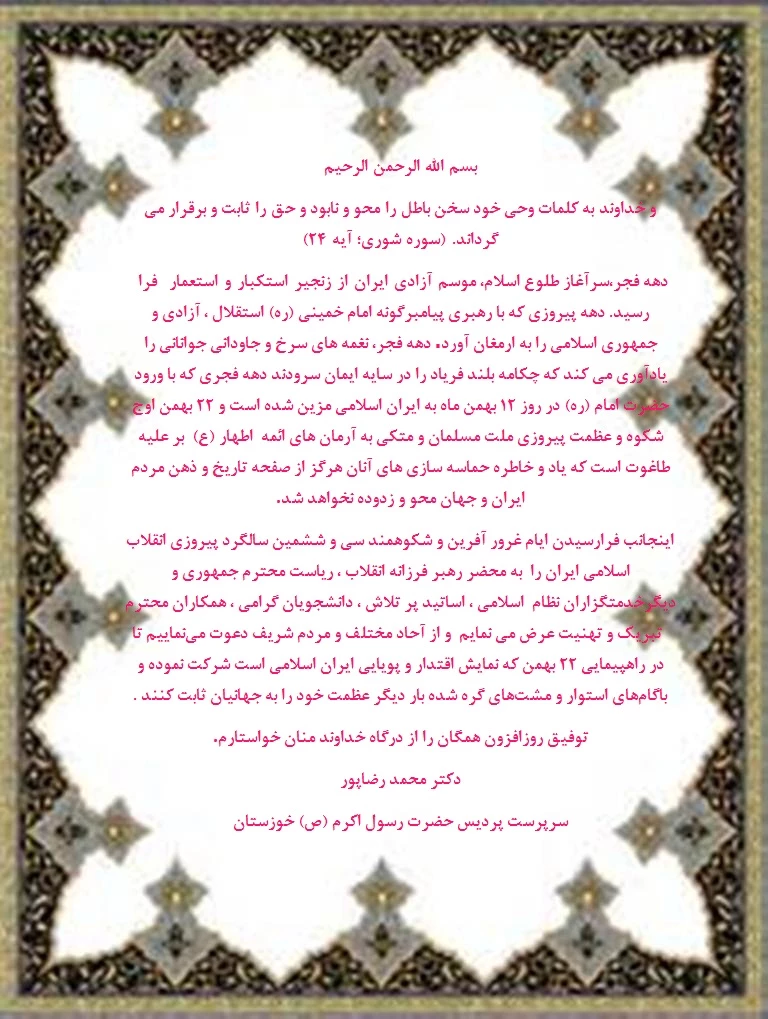 بسم الله الرحمن الرحیم
و خداوند به کلمات وحی خود سخن باطل را محو و نابود و حق را ثابت و برقرار می
گرداند. (سوره شوری؛ آیه ۲۴)
دهه فجر،سرآغاز طلوع اسلام، موسم آزادی ایران از زنجیر استکبار و استعمار فرا
رسید. دهه پیروزی که با رهبری پیامبرگونه امام خمینی (ره) استقلال ، آزادی و
جمهوری اسلامی را به ارمغان آورد. دهه فجر، نغمه های سرخ و جاودانی جوانانی را
یادآوری می کند که چکامه بلند فریاد را در سایه ایمان سرودند دهه فجری که با ورود
حضرت امام (ره) در روز ۱۲ بهمن ماه به ایران اسلامی مزین شده است و ۲۲ بهمن اوج
شکوه و عظمت پیروزی ملت مسلمان و متکی به آرمان های ائمه اطهار (ع) بر علیه
طاغوت است که یاد و خاطره حماسه سازی های آنان هرگز از صفحه تاریخ و ذهن مردم
ایران و جهان محو و زدوده نخواهد شد.
اینجانب فرارسیدن ایام غرور آفرین و شکوهمند سی و ششمین سالگرد پیروزی انقلاب
اسلامی ایران را به محضر رهبر فرزانه انقلاب ، ریاست محترم جمهوری و
دیگرخدمتگزاران نظام اسلامی ، اساتید پر تلاش ، دانشجویان گرامی ، همکاران محترم
تبریک و تهنیت عرض می نمایم و از آحاد مختلف و مردم شریف دعوت می‌نماییم تا
در راهپیمایی ۲۲ بهمن که نمایش اقتدار و پویایی ایران اسلامی است شرکت نموده و
باگام‌های استوار و مشت‌های گره شده بار دیگر عظمت خود را به جهانیان ثابت کنند .
توفیق روزافزون همگان را از درگاه خداوند منان خواستارم.
دکتر محمد رضاپور
سرپرست پردیس حضرت رسول اکرم (ص) خوزستان